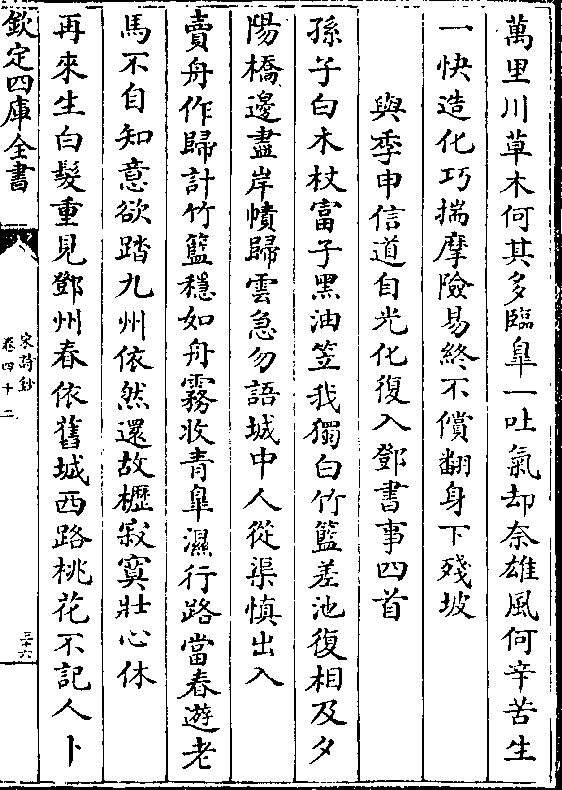 萬里川草木何其多臨臯一吐氣却奈雄風何辛苦生
一快造化巧揣摩險易終不償翻身下殘坡
與季申信道自光化復入鄧書事四首
孫子白木杖富子黑油笠我獨白竹籃差池復相及夕
陽橋邊盡岸幘歸雲急勿語城中人從渠慎出入
賣舟作歸計竹籃穩如舟霧收青臯濕行路當春遊老
馬不自知意欲踏九州依然還故櫪寂寞壯心休
再來生白髮重見鄧州春依舊城西路桃花不記人卜
欽定四庫全書
宋詩鈔
卷四十二
三十六